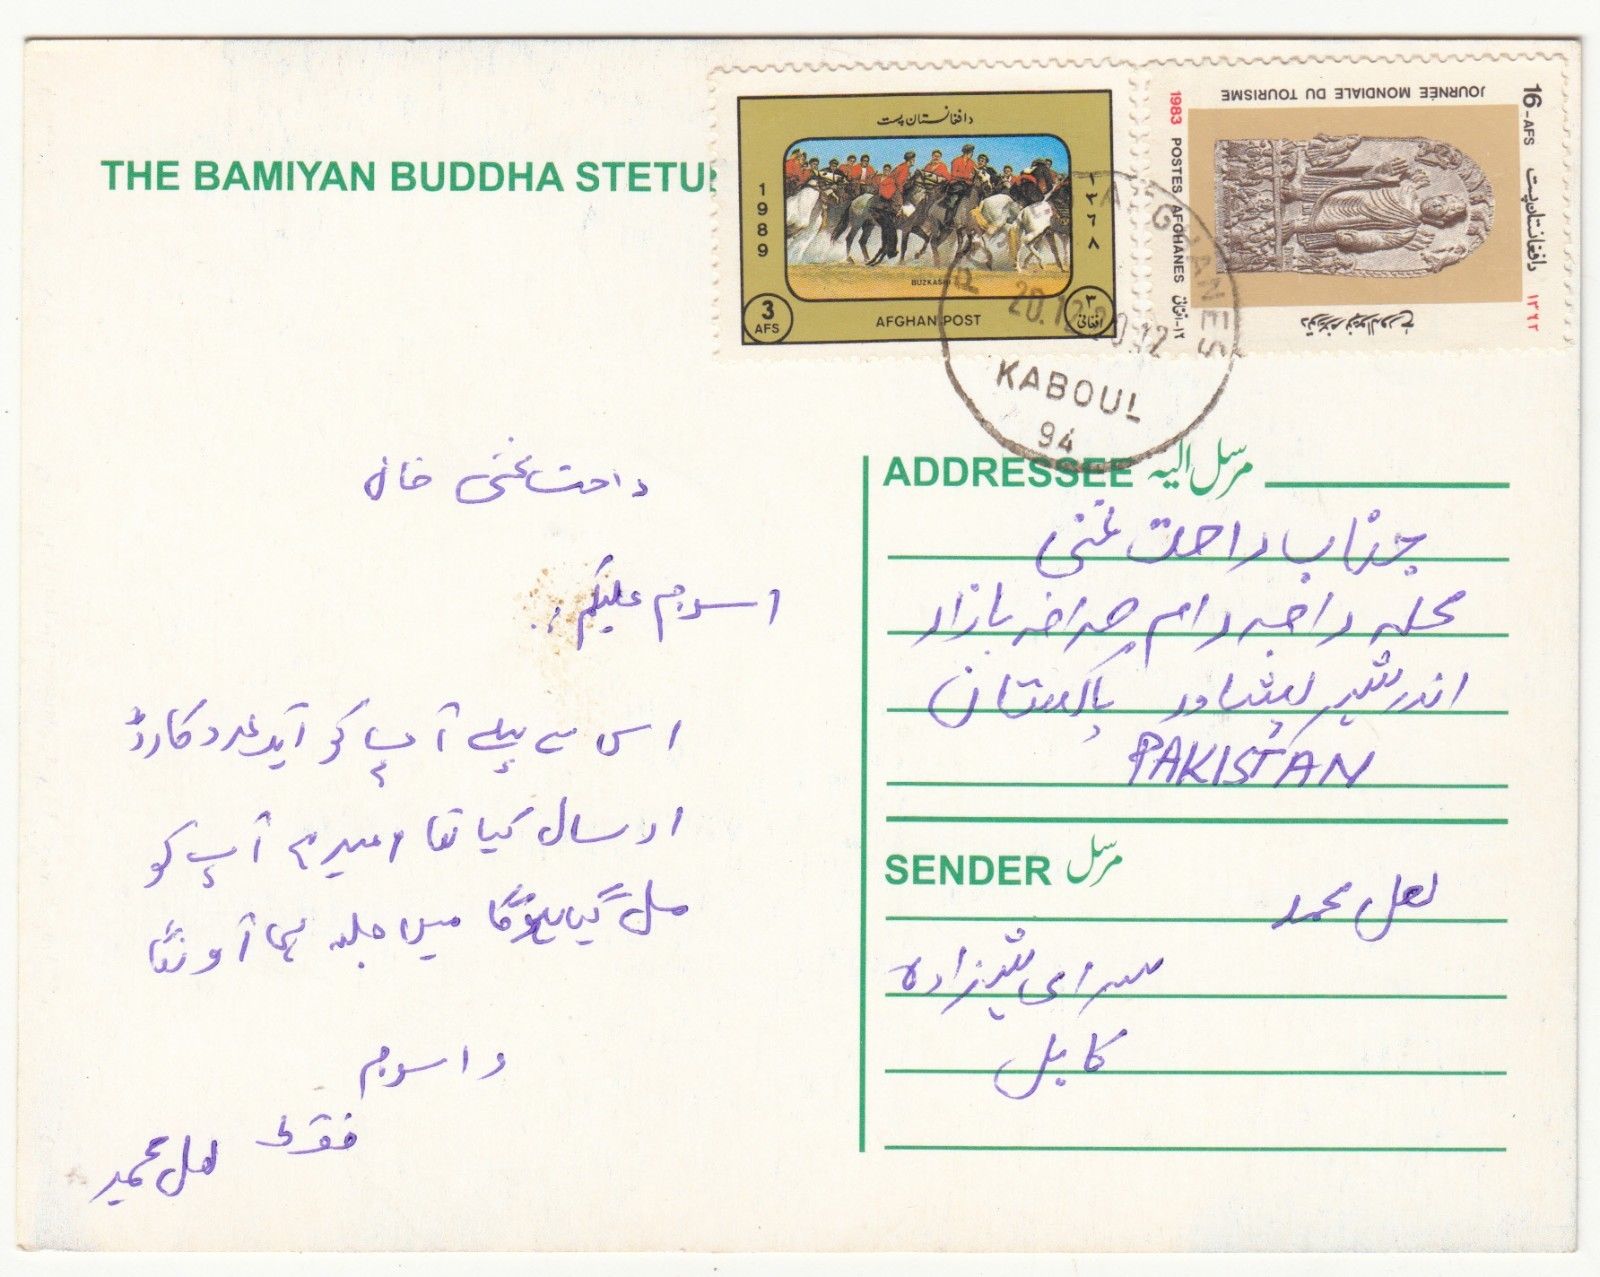 THE BAMIYAN BUDDHA STETU
دافغانستان پست
1989
١٣٦٨
BUZKASHI
3 AFS
AFGHAN POST
٣ افغانی
JOURNÉE MONDIALE DU TOURISME
16 -AFS
دافغانستان پست
١٣٦٢
1983 POSTES AFGHANES
KABOUL
94
راحت غنی خان
اسلام علیکم
اس سے پہلے آپ کو ایک عدد کارڈ
ارسال کیا تھا امید ہے آپ کو
مل گیا ہوگا میں جلد ہی آونگا
واسلام
فقط لعل محمد
ADDRESSEE مرسل الیه
جناب راحت غنی
محلہ راجہ رام صرافہ بازار
اندر شہر پشاور پاکستان
PAKISTAN
SENDER مرسل
لعل محمد
سرای شہزادہ
کابل